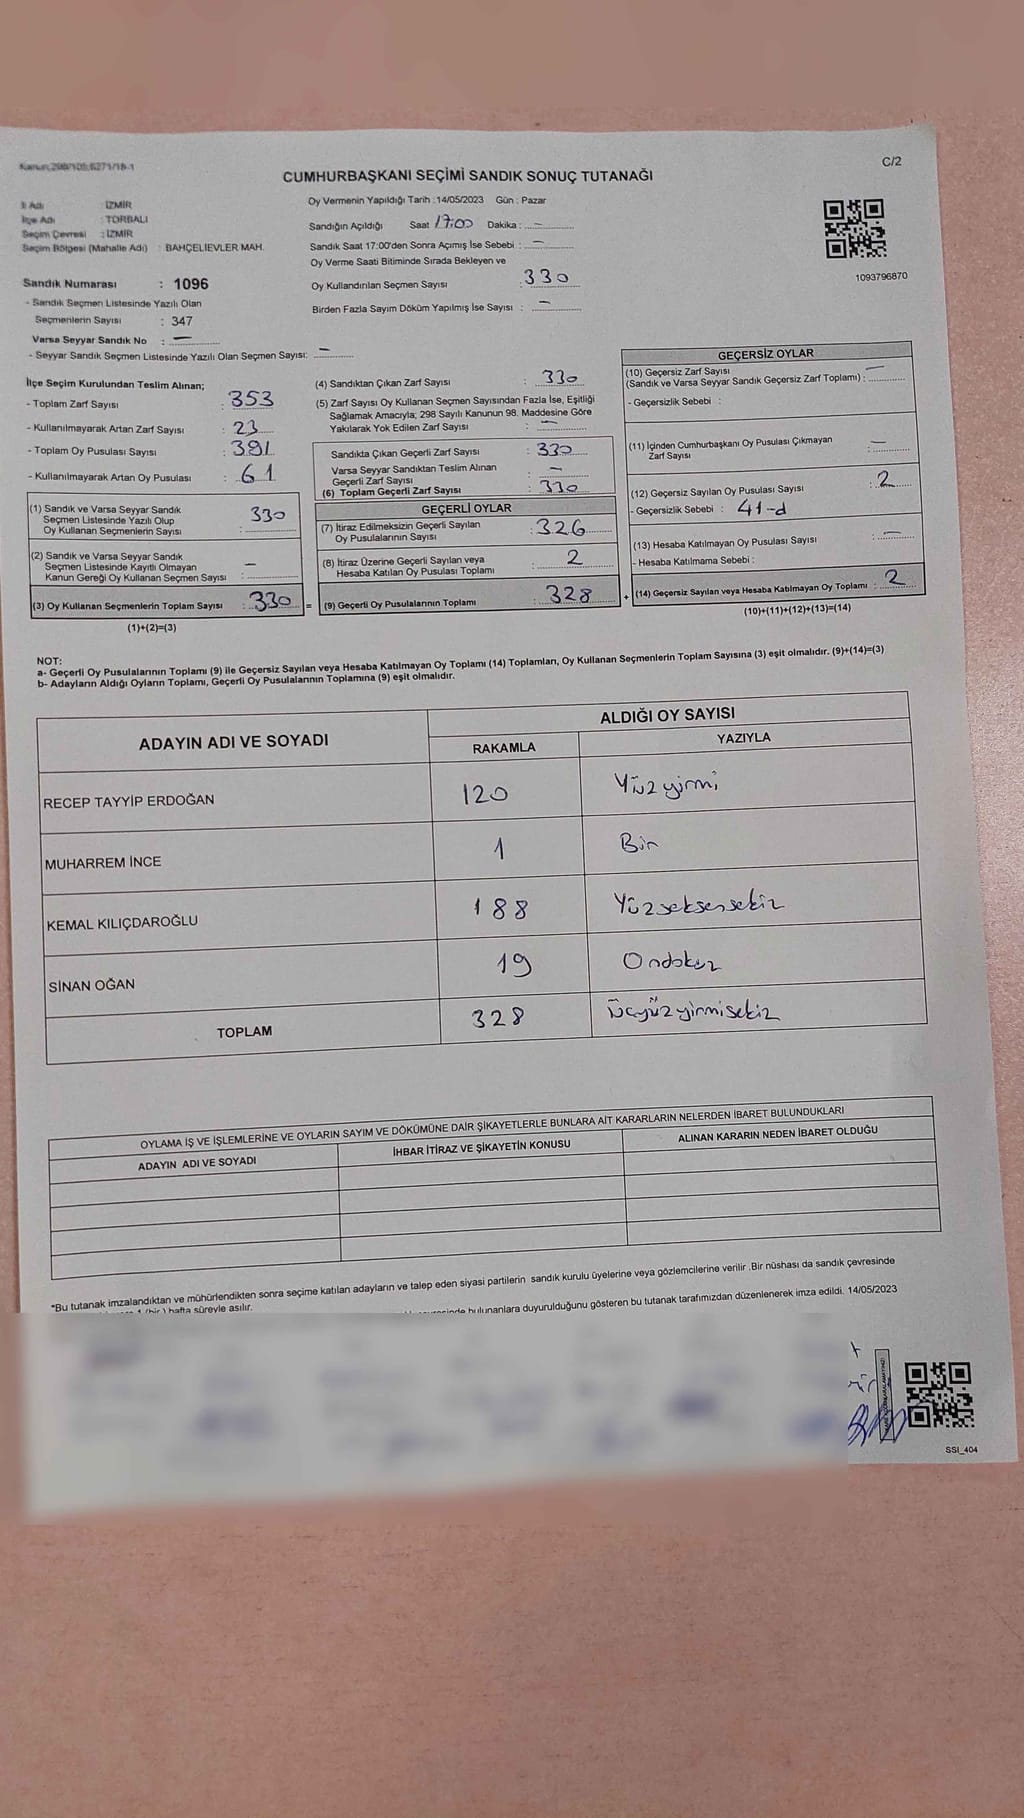 C/2
CUMHURBAŞKANI SEÇİMİ SANDIK SONUÇ TUTANAĞI
İl Adı : İZMİR
İlçe Adı : TORBALI
Seçim Çevresi : İZMİR
Seçim Bölgesi (Mahalle Adı) : BAHÇELİEVLER MAH.
Oy Vermenin Yapıldığı Tarih :14/05/2023 Gün : Pazar
Sandığın Açıldığı Saat 17:00 Dakika : —
Sandık Saat 17:00'den Sonra Açımış İse Sebebi : —
Oy Verme Saati Bitiminde Sırada Bekleyen ve
Oy Kullandırılan Seçmen Sayısı : 330
Birden Fazla Sayım Döküm Yapılmış İse Sayısı : —
1093796870
Sandık Numarası : 1096
- Sandık Seçmen Listesinde Yazılı Olan
Seçmenlerin Sayısı : 347
Varsa Seyyar Sandık No : —
- Seyyar Sandık Seçmen Listesinde Yazılı Olan Seçmen Sayısı: —
İlçe Seçim Kurulundan Teslim Alınan;
- Toplam Zarf Sayısı : 353
- Kullanılmayarak Artan Zarf Sayısı : 23
- Toplam Oy Pusulası Sayısı : 391
- Kullanılmayarak Artan Oy Pusulası : 61
(1) Sandık ve Varsa Seyyar Sandık
Seçmen Listesinde Yazılı Olup
Oy Kullanan Seçmenlerin Sayısı : 330
(2) Sandık ve Varsa Seyyar Sandık
Seçmen Listesinde Kayıtlı Olmayan
Kanun Gereği Oy Kullanan Seçmen Sayısı : —
(3) Oy Kullanan Seçmenlerin Toplam Sayısı : 330 =
(1)+(2)=(3)
(4) Sandıktan Çıkan Zarf Sayısı : 330
(5) Zarf Sayısı Oy Kullanan Seçmen Sayısından Fazla İse, Eşitliği
Sağlamak Amacıyla; 298 Sayılı Kanunun 98. Maddesine Göre
Yakılarak Yok Edilen Zarf Sayısı : —
Sandıkta Çıkan Geçerli Zarf Sayısı : 330
Varsa Seyyar Sandıktan Teslim Alınan
Geçerli Zarf Sayısı : —
(6) Toplam Geçerli Zarf Sayısı : 330
GEÇERLİ OYLAR
(7) İtiraz Edilmeksizin Geçerli Sayılan
Oy Pusulalarının Sayısı : 326
(8) İtiraz Üzerine Geçerli Sayılan veya
Hesaba Katılan Oy Pusulası Toplamı : 2
(9) Geçerli Oy Pusulalarının Toplamı : 328 +
GEÇERSİZ OYLAR
(10) Geçersiz Zarf Sayısı
(Sandık ve Varsa Seyyar Sandık Geçersiz Zarf Toplamı) : —
- Geçersizlik Sebebi :
(11) İçinden Cumhurbaşkanı Oy Pusulası Çıkmayan
Zarf Sayısı : —
(12) Geçersiz Sayılan Oy Pusulası Sayısı : 2
- Geçersizlik Sebebi : 41-d
(13) Hesaba Katılmayan Oy Pusulası Sayısı : —
- Hesaba Katılmama Sebebi :
(14) Geçersiz Sayılan veya Hesaba Katılmayan Oy Toplamı : 2
(10)+(11)+(12)+(13)=(14)
NOT:
a- Geçerli Oy Pusulalarının Toplamı (9) ile Geçersiz Sayılan veya Hesaba Katılmayan Oy Toplamı (14) Toplamları, Oy Kullanan Seçmenlerin Toplam Sayısına (3) eşit olmalıdır. (9)+(14)=(3)
b- Adayların Aldığı Oyların Toplamı, Geçerli Oy Pusulalarının Toplamına (9) eşit olmalıdır.
ADAYIN ADI VE SOYADI ALDIĞI OY SAYISI
RAKAMLA YAZIYLA
RECEP TAYYİP ERDOĞAN 120 Yüzyirmi
MUHARREM İNCE 1 Bir
KEMAL KILIÇDAROĞLU 188 Yüzseksensekiz
SİNAN OĞAN 19 Ondokuz
TOPLAM 328 Üçyüzyirmisekiz
OYLAMA İŞ VE İŞLEMLERİNE VE OYLARIN SAYIM VE DÖKÜMÜNE DAİR ŞİKAYETLERLE BUNLARA AİT KARARLARIN NELERDEN İBARET BULUNDUKLARI
ADAYIN ADI VE SOYADI İHBAR İTİRAZ VE ŞİKAYETİN KONUSU ALINAN KARARIN NEDEN İBARET OLDUĞU
*Bu tutanak imzalandıktan ve mühürlendikten sonra seçime katılan adayların ve talep eden siyasi partilerin sandık kurulu üyelerine veya gözlemcilerine verilir .Bir nüshası da sandık çevresinde
1 (bir ) hafta süreyle asılır.
bulunanlara duyurulduğunu gösteren bu tutanak tarafımızdan düzenlenerek imza edildi. 14/05/2023
SSI_404